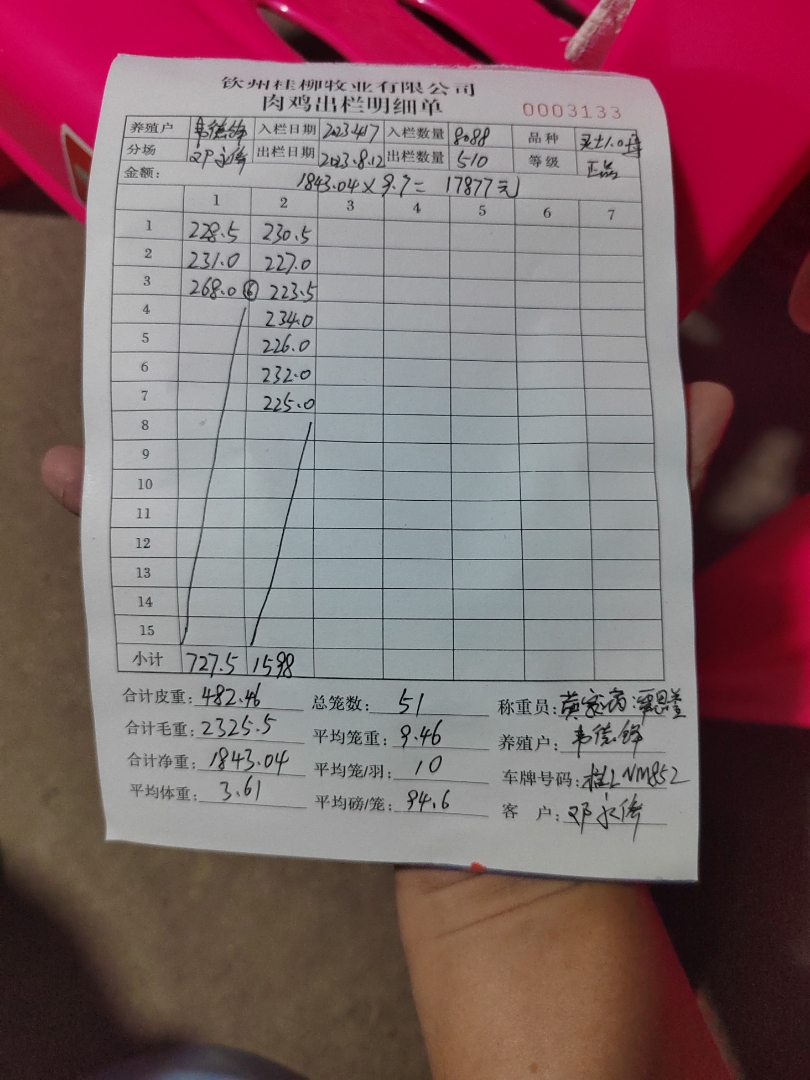 钦州桂柳牧业有限公司
肉鸡出栏明细单 0003133
养殖户 韦德锋 入栏日期 2023.4.17 入栏数量 8088 品种
分场 邓永俦 出栏日期 2023.8.12 出栏数量 510 等级 正品
金额: 1843.04×9.7= 17877元
1 2 3 4 5 6 7
1 228.5 230.5
2 231.0 227.0
3 268.0 ⑥ 223.5
4 234.0
5 226.0
6 232.0
7 225.0
8
9
10
11
12
13
14
15
小计 727.5 1598
合计皮重: 482.46 总笼数: 51 称重员: 黄
合计毛重: 2325.5 平均笼重: 9.46 养殖户: 韦德锋
合计净重: 1843.04 平均笼/羽: 10 车牌号码: 桂LNM852
平均体重: 3.61 平均磅/笼: 94.6 客 户: 邓永俦